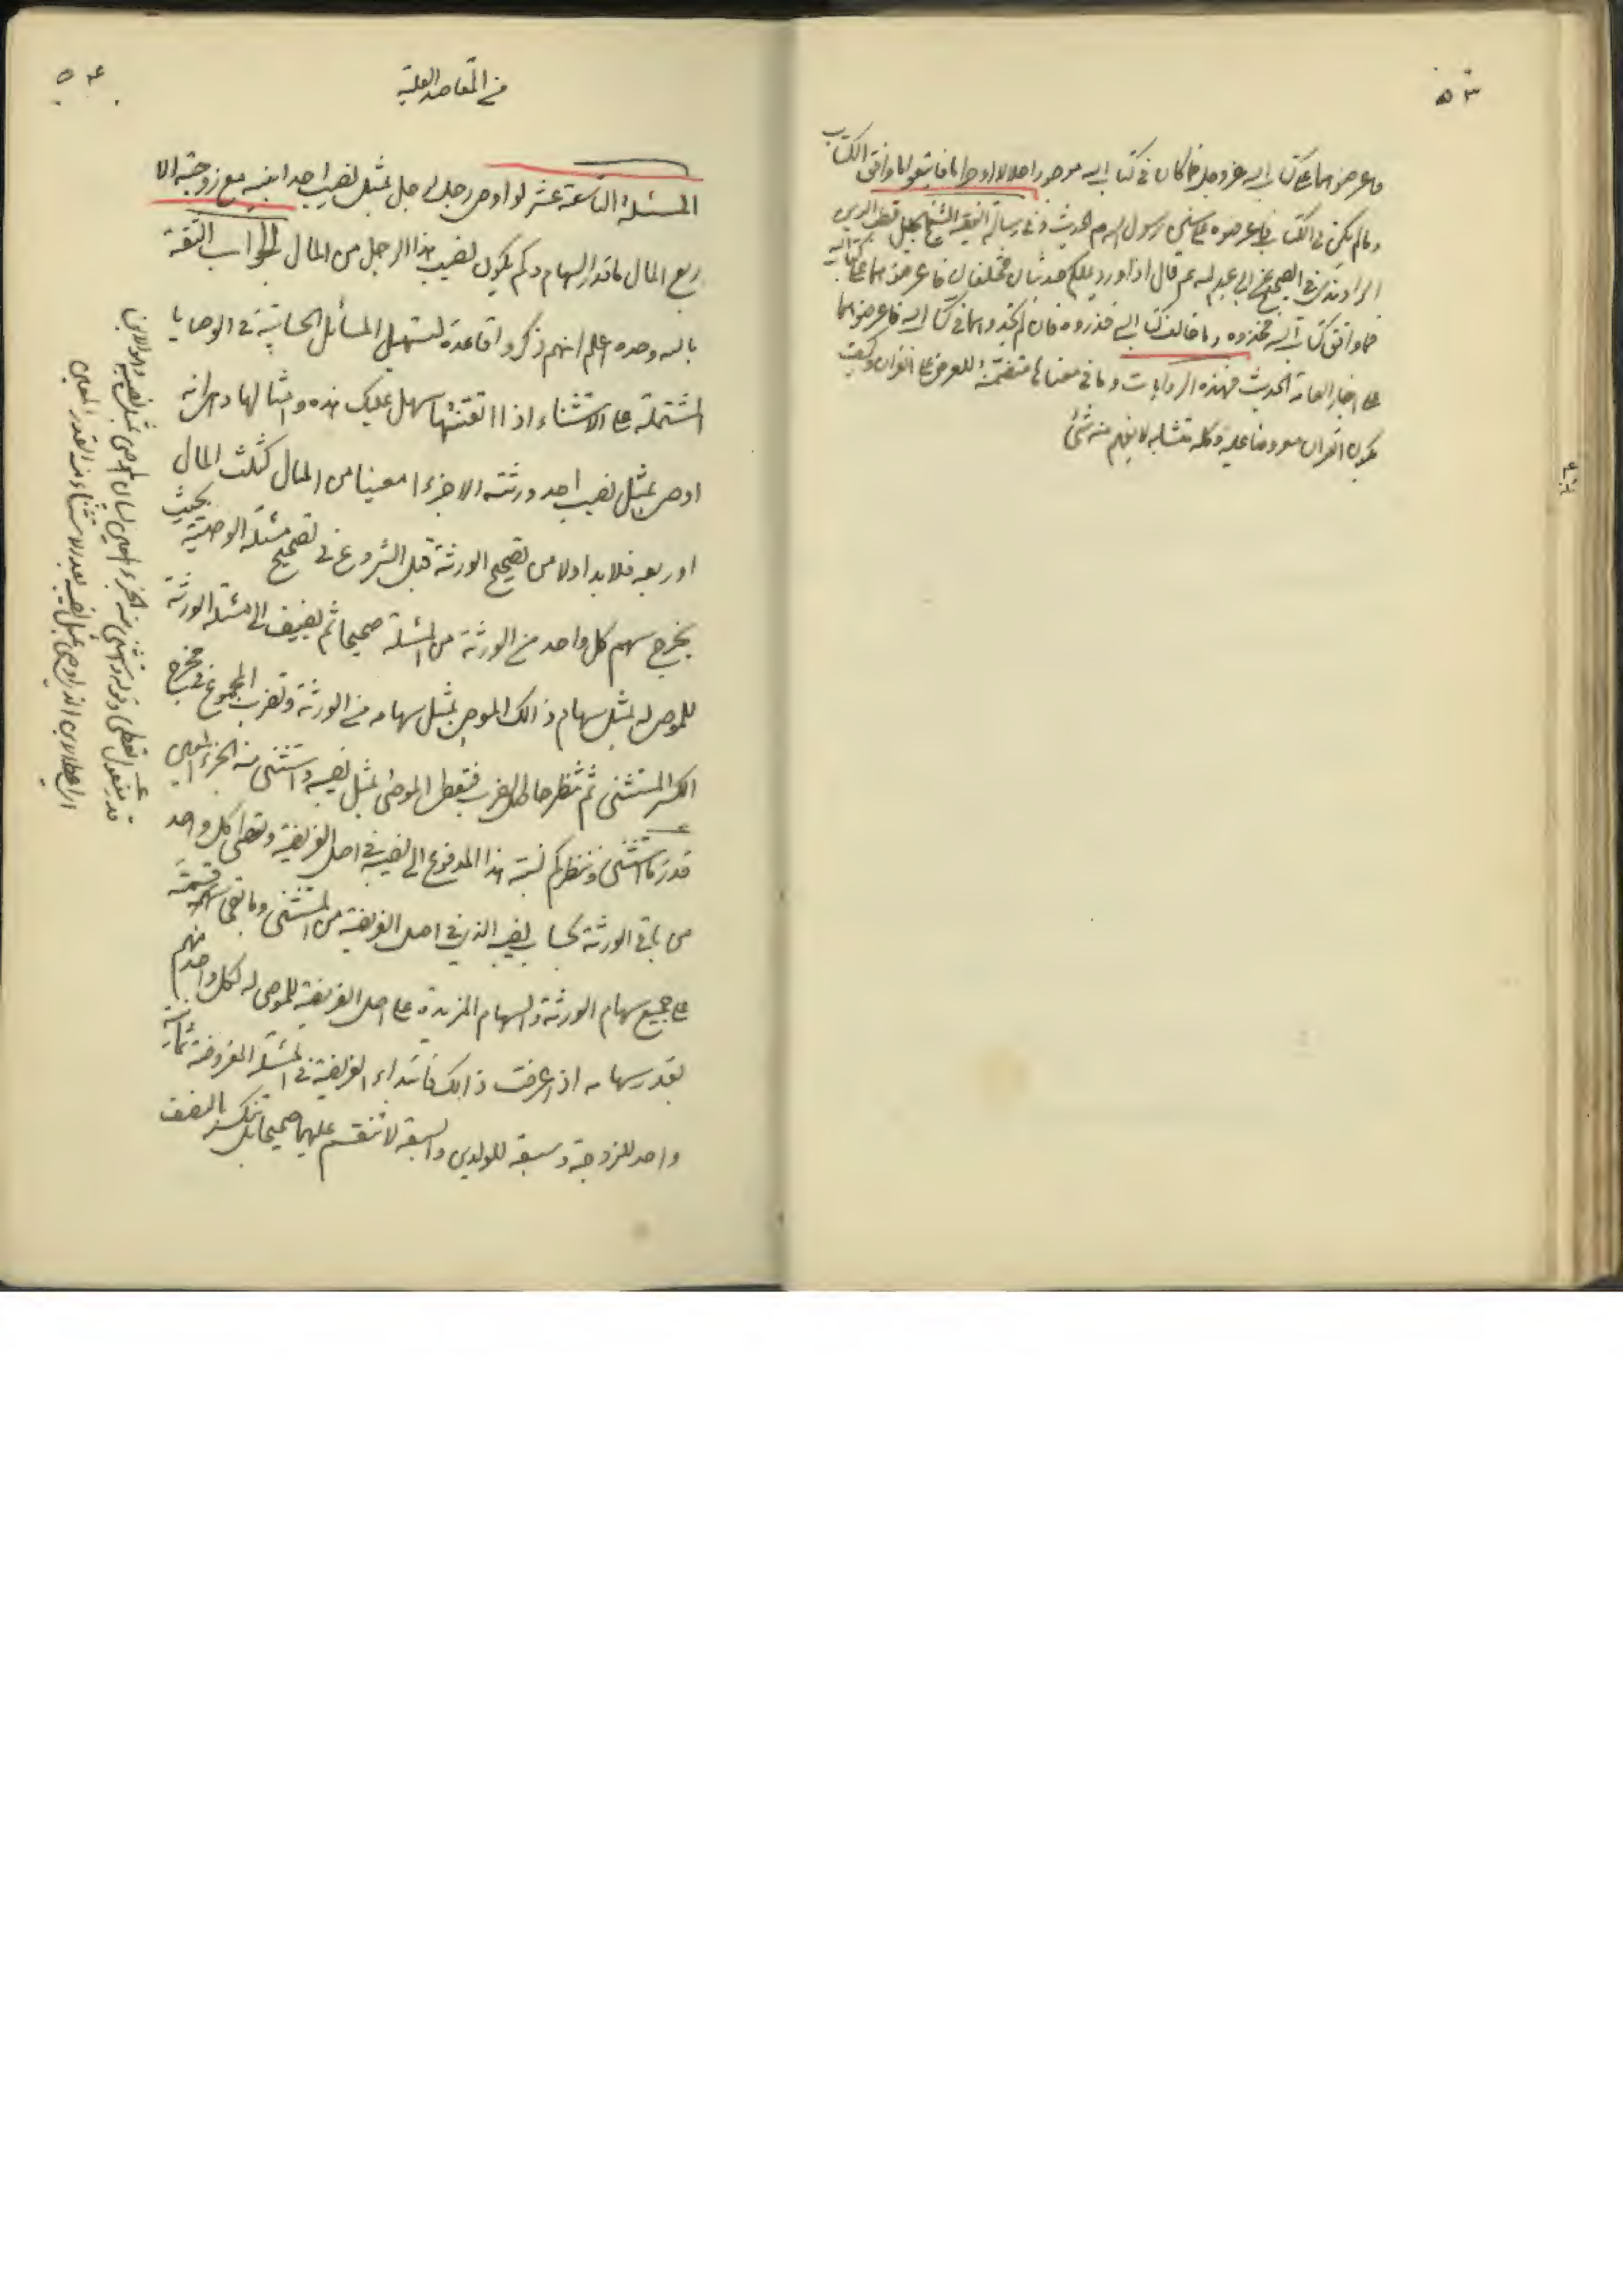 ٥٣
فاعرضوهما على كتاب الله عز وجل فما كان في كتاب الله موجودا حلالا او حراما فاتبعوا ما وافق الكتاب
وما لم يكن في الكتاب فاعرضوه على سنن رسول الله ص الحديث وفي رسالة الفقيه الشيخ الجليل قطب الدين
الراوندي في الصحيح عن ابي عبد الله عم قال اذا ورد عليكم حديثان مختلفان فاعرضوهما على كتاب الله
فما وافق كتاب الله فخذوه وما خالف كتاب الله فذروه فان لم تجدوهما في كتاب الله فاعرضوهما
على اخبار العامة الحديث فهذه الروايات وما في معناها متضمنة للعرض على القران وكيف
يكون القران معروضا عليه وكله متشابه لا يفهم منه شئ
٥٤
من المقاصد العلية
المسئلة التاسعة عشر لو اوصى رجل لرجل بمثل نصيب احد ابنيه مع زوجته الا
ربع المال ما قدر السهام وكم يكون نصيب هذا الرجل من المال الجواب الثقة
بالله وحده اعلم انهم ذكروا قاعدة لتسهيل المسائل الحسابية في الوصايا
المشتملة على الاستثناء اذا اتقنتها سهل عليك هذه وامثالها وهي انه
اوصى بمثل نصيب احد ورثته الا جزءا معينا من المال كثلث المال
او ربعه فلابد اولا من تصحيح الورثة قبل الشروع في تصحيح مسئلة الوصية بحيث
يخرج سهم كل واحد من الورثة من المسئلة صحيحا ثم يضيف الى مسئلة الورثة
للموصى له بمثل سهام ذالك الموصى بمثل سهامه من الورثة وتضرب المجموع في مخرج
الكسر المستثنى ثم تنظر حاصل الضرب فتعطى الموصى بمثل نصيبه واستثنى منه الجزء المعين
قدر ما استثنى وتنظر كم نسبة هذا المدفوع الى نصيبه في اصل الفريضة وتعطى كل واحد
من باقي الورثة بحساب نصيبه الذي في اصل الفريضة من المستثنى وما بقى قسمته
على جميع سهام الورثة والسهام المزيدة على اصل الفريضة للموصى له لكل واحد منهم
بقدر سهامه اذا عرفت ذالك فابتداء الفريضة في المسئلة المفروضة ثمانية
واحد للزوجة وسبعة للولدين والسبعة لا تنقسم عليهما صحيحا بل تنكسر بالنصف